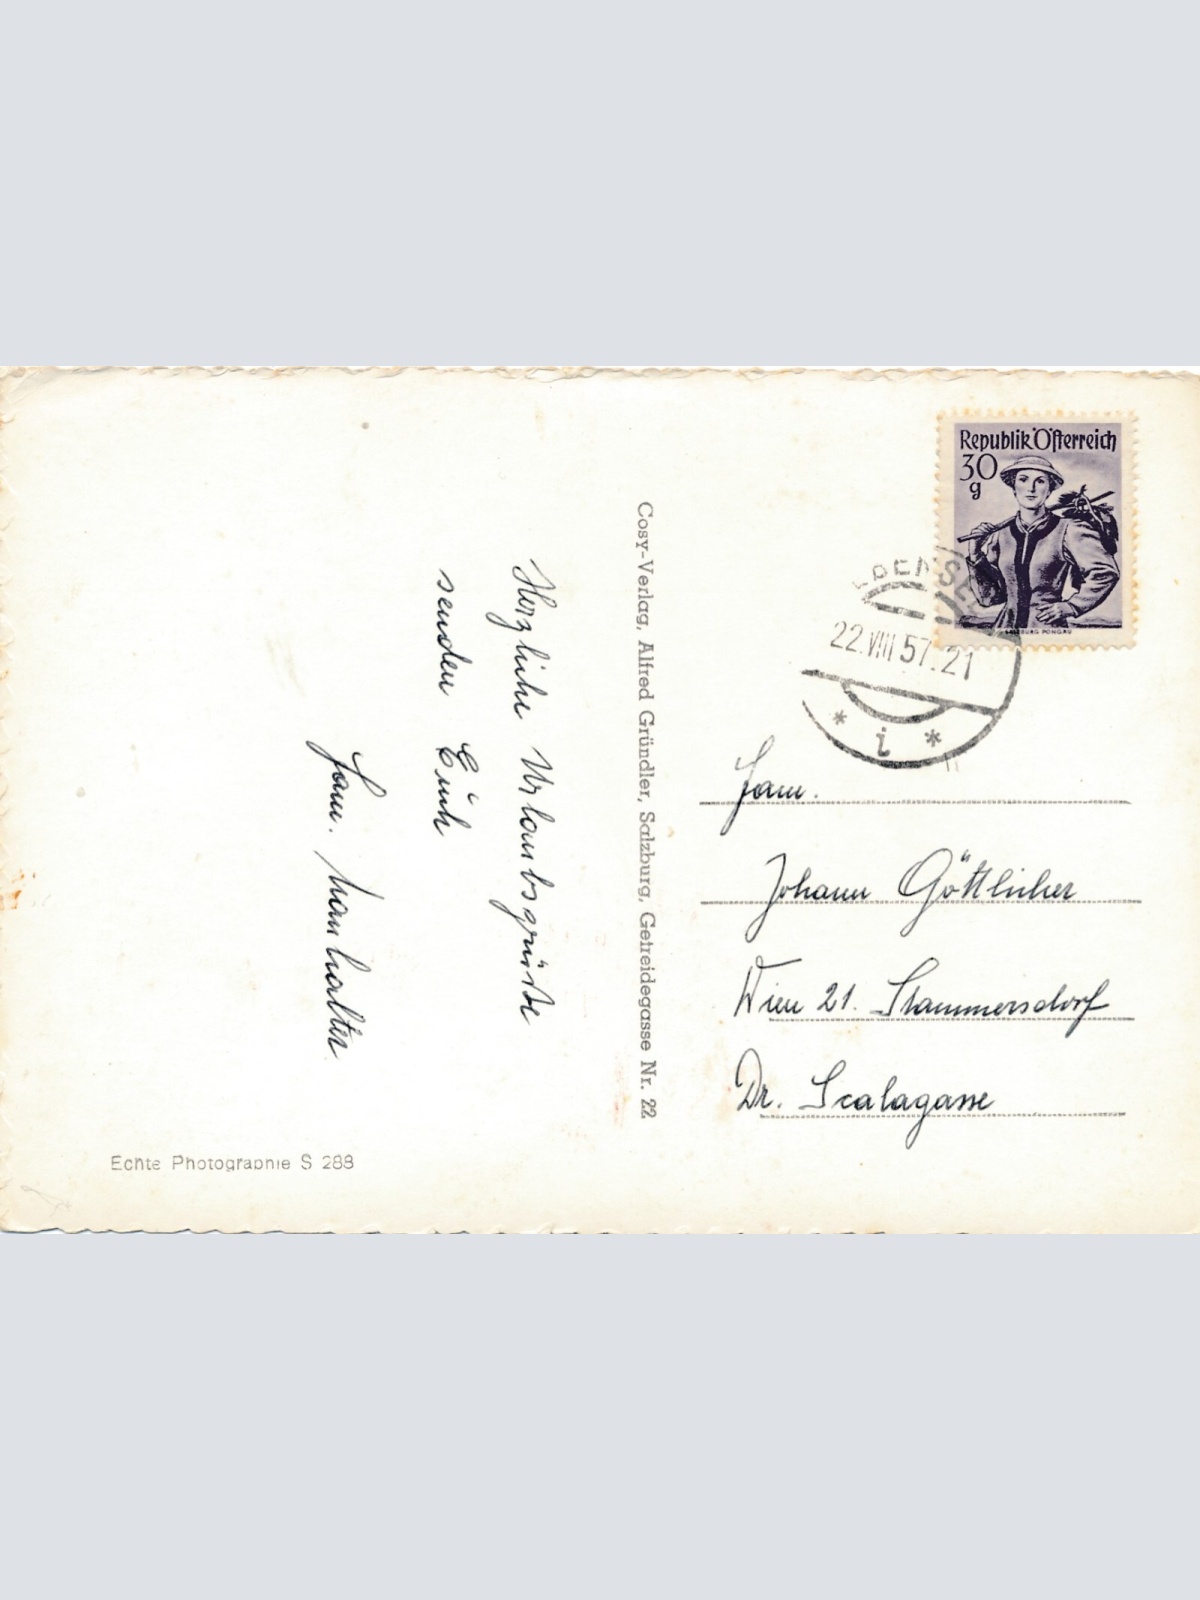 Herzliche Urlaubsgrüße
senden Euch
Fam.
Echte Photographie S 288
Cosy-Verlag, Alfred Gründler, Salzburg, Getreidegasse Nr. 22
Republik Österreich
30
g
SALZBURG PONGAU
EBENSEE
22.VIII 57.21
* i *
Fam.
Johann Göttlicher
Wien 21. Stammersdorf
Dr. Scalagasse